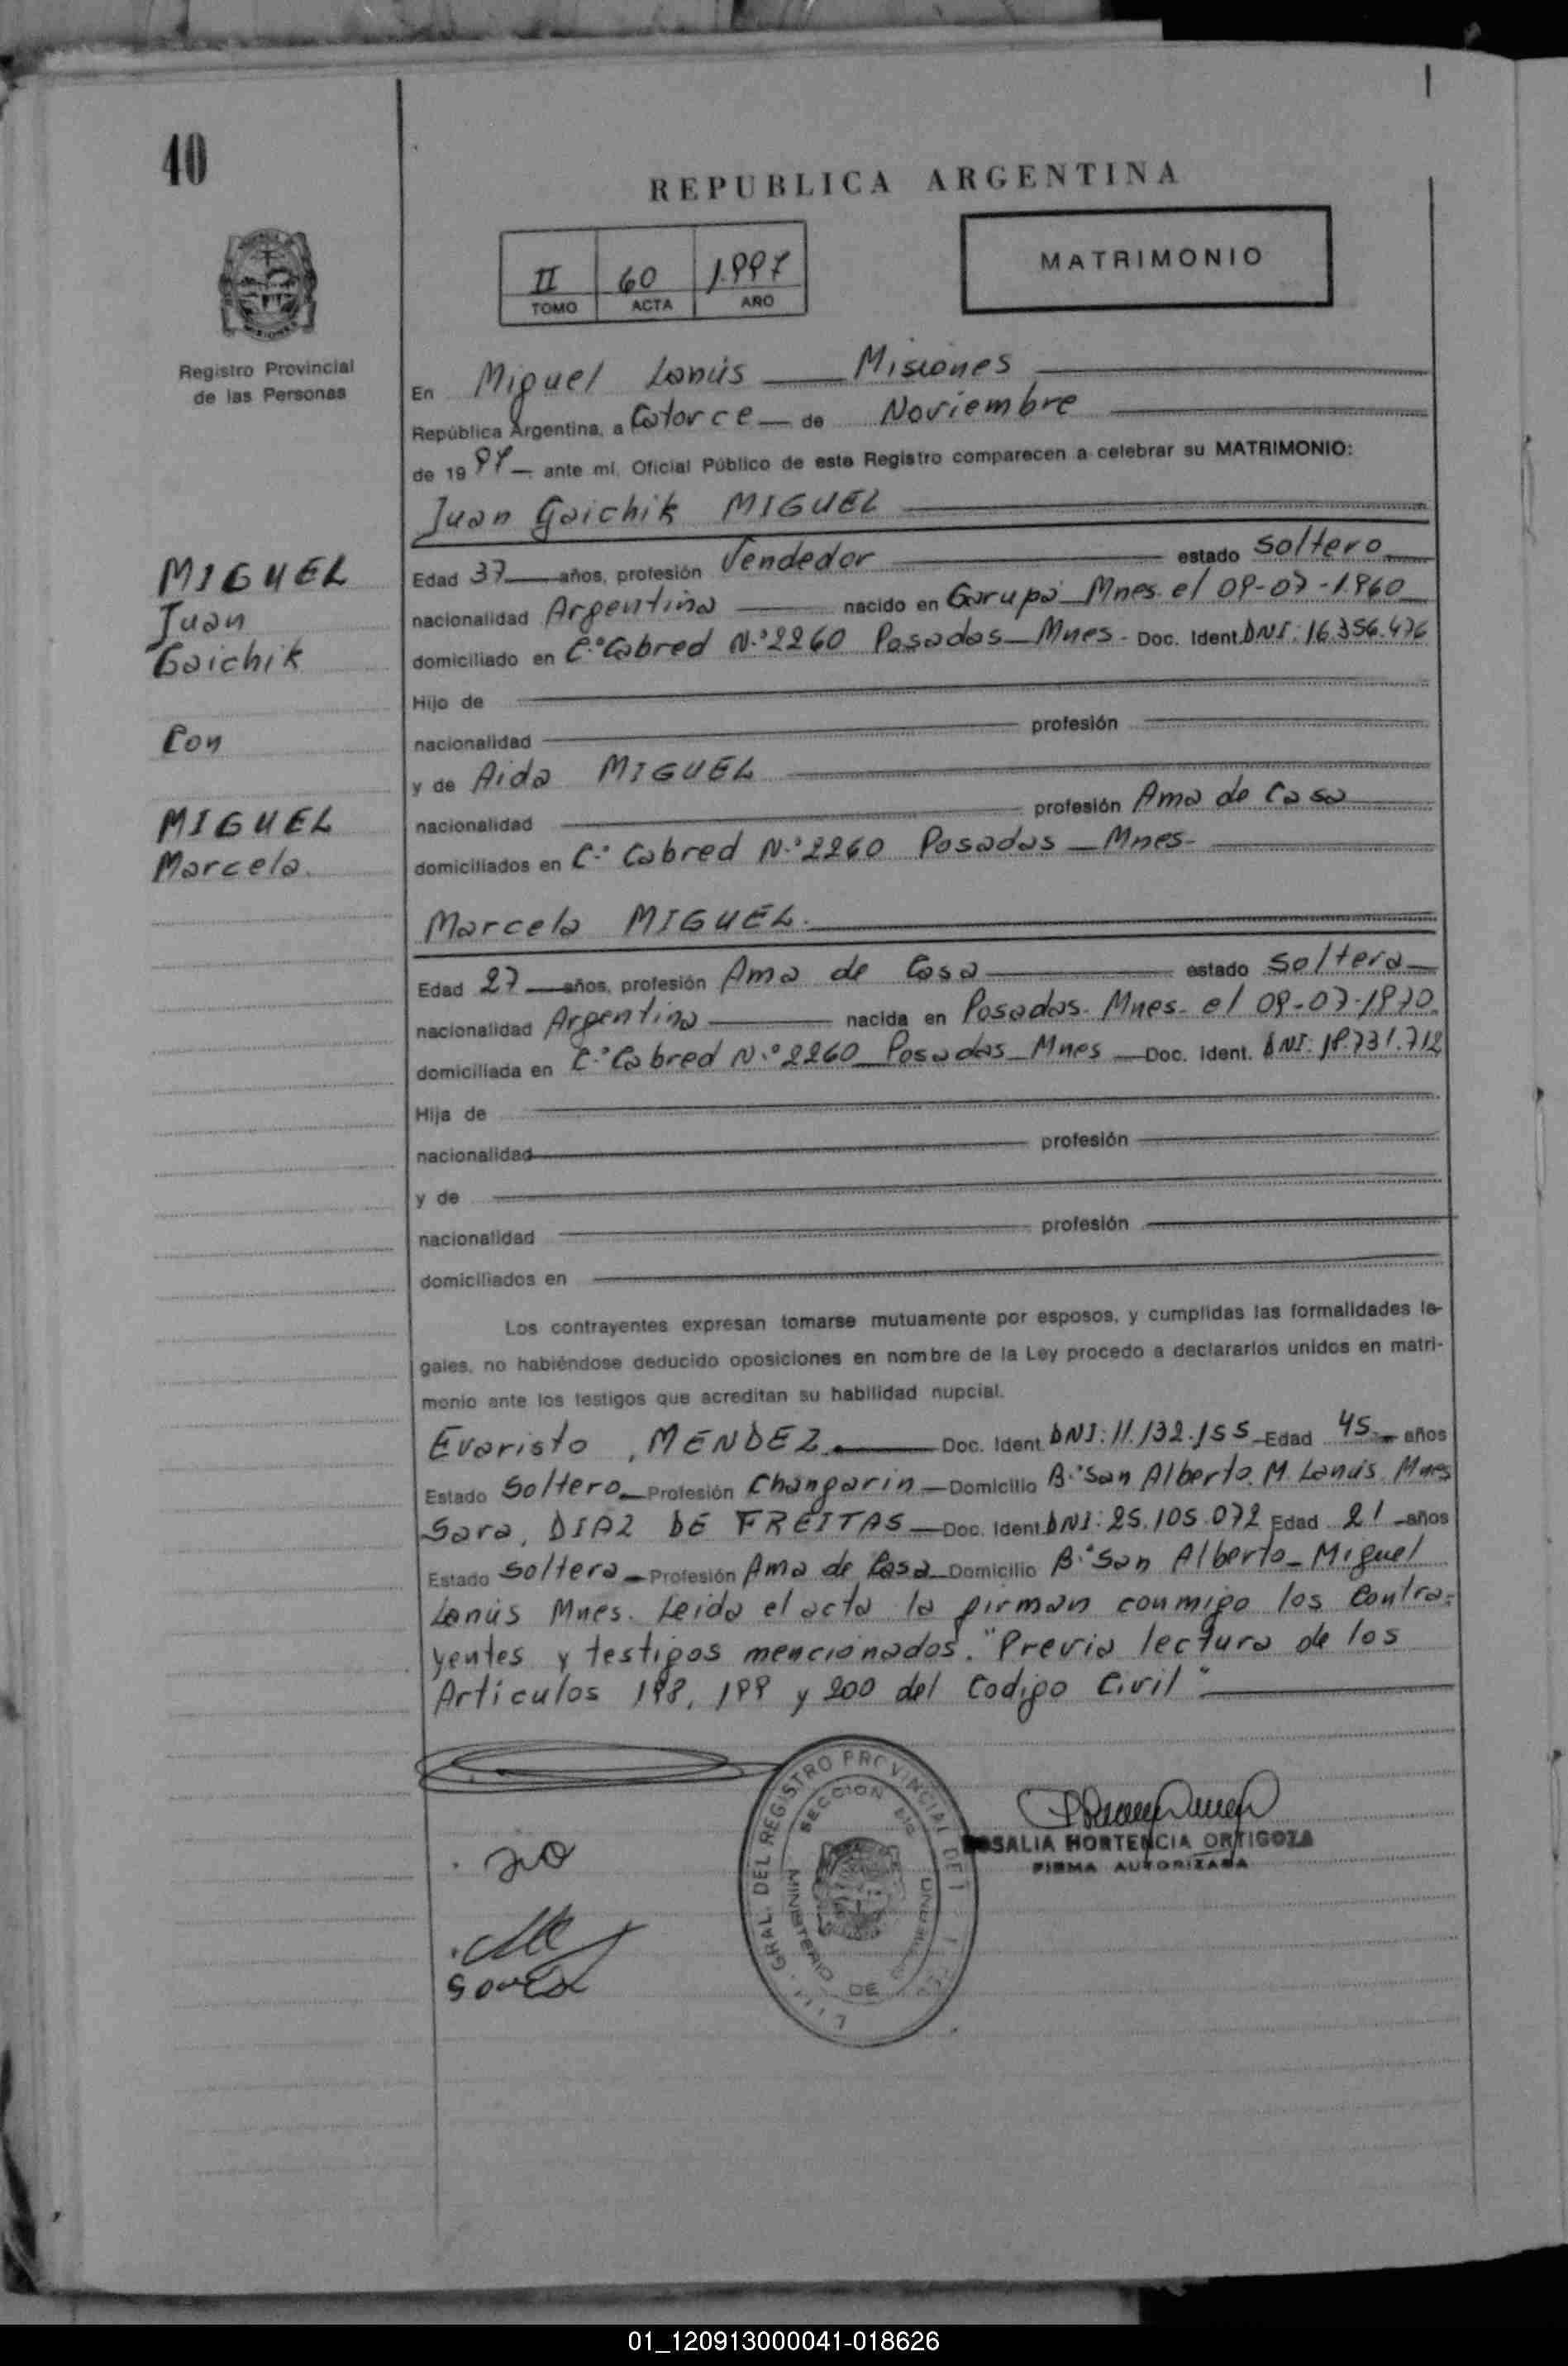 40
REPUBLICA ARGENTINA
II 60 1.997
TOMO ACTA AÑO
MATRIMONIO
Registro Provincial
de las Personas
En Miguel Lanús Misiones
República Argentina, a Catorce de Noviembre
de 19 97 ante mí, Oficial Público de este Registro comparecen a celebrar su MATRIMONIO:
Juan Gaichik MIGUEL
Edad 37 años, profesión Vendedor estado Soltero
nacionalidad Argentina nacido en Garupá Mnes. el 09-07-1.960
domiciliado en C.º Cabred N.º 2260 Posadas Mnes - Doc. Ident. DNI: 16.356.476
Hijo de
nacionalidad profesión
y de Aida MIGUEL
nacionalidad profesión Ama de Casa
domiciliados en C.º Cabred N.º 2260 Posadas Mnes-
MIGUEL
Juan
Gaichik
Con
MIGUEL
Marcela.
Marcela MIGUEL.
Edad 27 años, profesión Ama de Casa estado Soltera
nacionalidad Argentina nacida en Posadas. Mnes- el 09-07-1970.
domiciliada en C.º Cabred N.º 2260 Posadas Mnes Doc. Ident. DNI: 18.731.712
Hija de
nacionalidad profesión
y de
nacionalidad profesión
domiciliados en
Los contrayentes expresan tomarse mutuamente por esposos, y cumplidas las formalidades le-
gales, no habiéndose deducido oposiciones en nombre de la Ley procedo a declararlos unidos en matri-
monio ante los testigos que acreditan su habilidad nupcial.
Evaristo, MENDEZ Doc. Ident. DNI: 11.132.155 Edad 45 años
Estado Soltero Profesión Changarin Domicilio B.º San Alberto. M. Lanús. Mnes
Sara, DIAZ DE FREITAS Doc. Ident. DNI: 25.105.072 Edad 21 años
Estado Soltera Profesión Ama de Casa Domicilio B.º San Alberto - Miguel
Lanús Mnes. Leida el acta la firman conmigo los Contra=
yentes y testigos mencionados. "Previa lectura de los
Articulos 198, 199 y 200 del Codigo Civil"
GRAL. DEL REGISTRO PROVINCIAL DE
SECCION
MINISTERIO DE
ROSALIA HORTENCIA ORTIGOZA
FIRMA AUTORIZADA
Sara
01_120913000041-018626